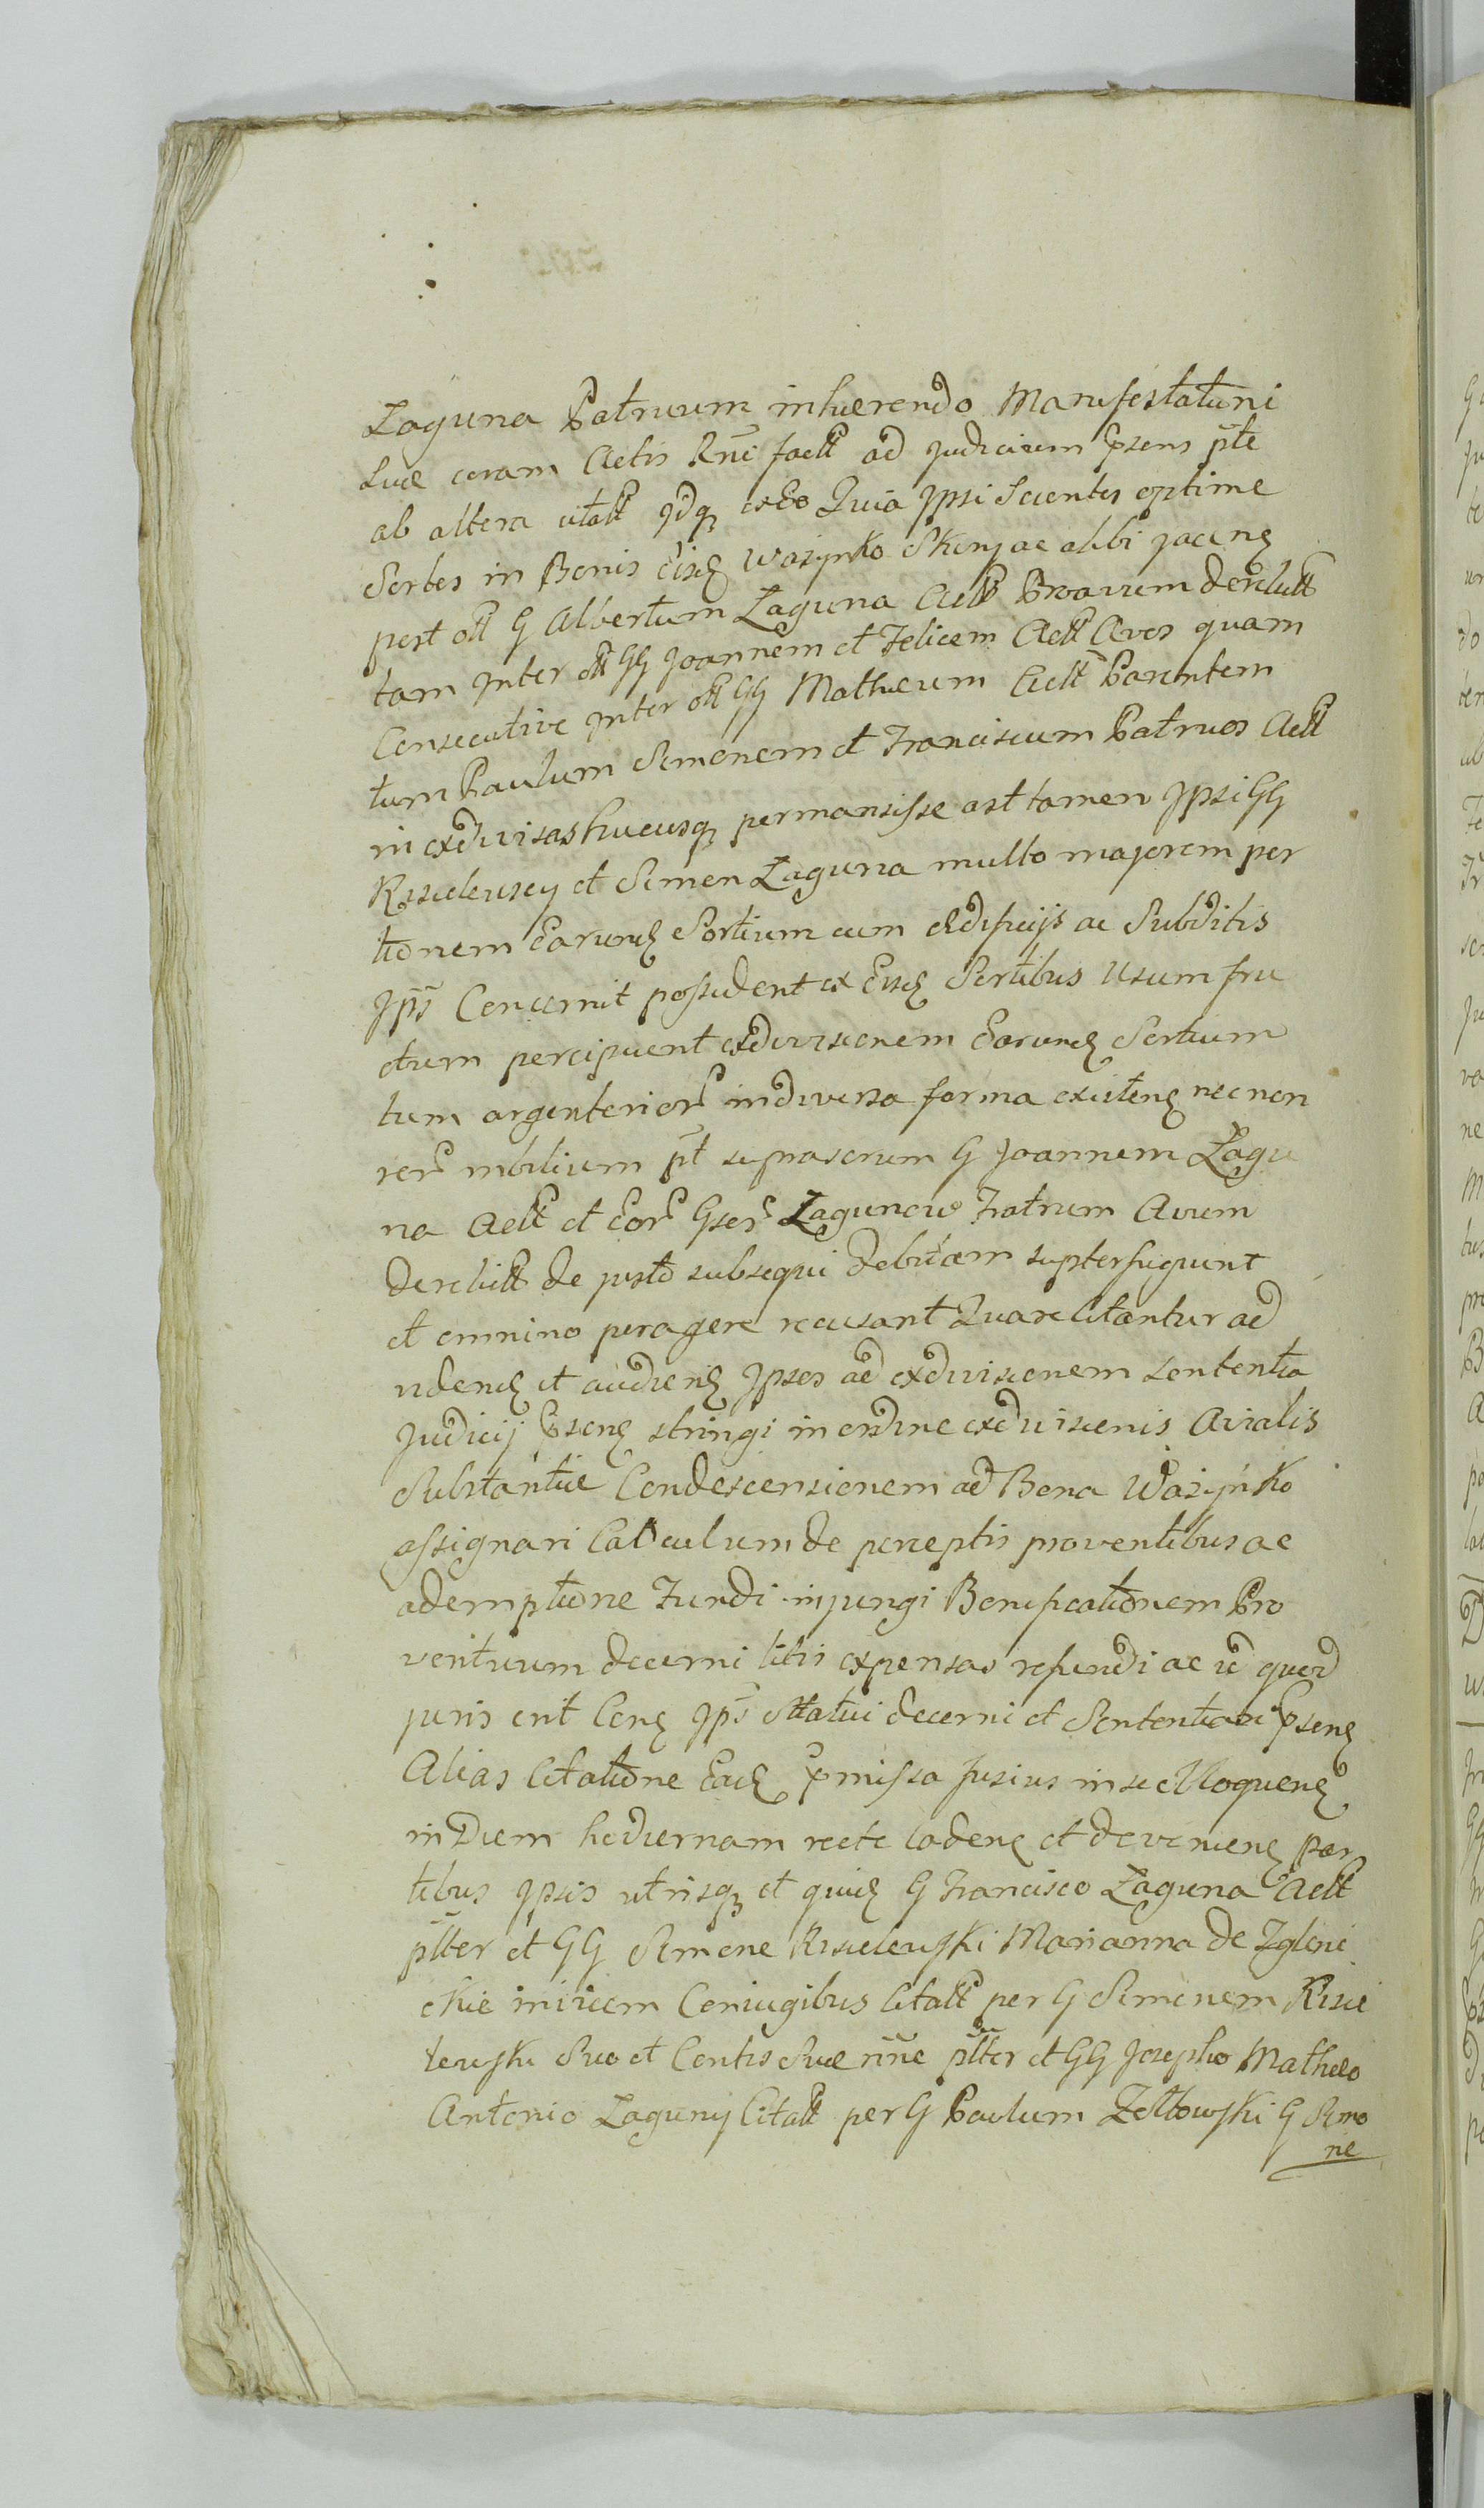 Laguna Patruum inhærendo Manifestatūni
Suæ coram Actis Rñi factt ad Judicium Psens pt̄e
ab altera citatt Jdq exEo Quia Jpsi Scientes optime
Sortes in Bonis eisd Wazynko Skupye alibi jacens
post ott G Albertum Laguna Actt Proavum derelictt
tam Jnter ott GG Joannem et Felicem Actt Avos quam
Consecutive Jnter ott GG Mathæum Actt Parentem
tum Paulum Simonem et Franciscum Patruos Actt
in exdivisas hucusq permansisse ast tamen Jpsi GG
Kisielewscy et Simon Laguna multo majorem por
tionem Earund Sortium cum ædificijs ac Subditis
Jps̄ Concernit possident ex Eisd Sortibus Usum fru
ctum percipiunt exdivisionem Earund Sortium
tum argenterior in diversa forma existens necnon
rer mbilium pt suprascrium G Joannem Lagu
na Actt et Eor Gser Lagunow Fratrum Avum
derelictt de justo subsequi debitam supterfugiunt
et omnino peragere recusant Quare Citantur ad
vdend et audiend Jpsos ad exdivisionem sententia
Judicij Psens stringi in ordine exdivisionis Avialis
Substantiæ Condescensionem ad Bona Wazynko
assignari Calculum de perceptis proventibus ac
ademptione Fundi injungi Bonificationem Pro
ventuum decerni litis expensas refundi ac id quod
juris erit Cons Jps̄ Statui decerni et Sententiari Psens
Alias Citatione Ead Pmissa fusius in se Eloquens
in Diem hodiernam recte cadens et deveniens par
tibus Jpsis utrisq et quid G Francisco Laguna Actt
plter et GG Simone Kisielewski Marianna de Zglini
ckie invicem Coniugibus Citatt per G Simonem Kisie
lewski Suo et Contis Suæ nñe plter et GG Josepho Mathæo
Antonio Laguny Citatt per G Paulum Zoltowski G Simo
ne